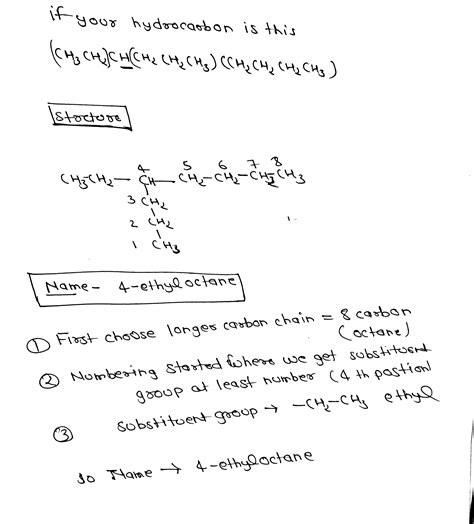 if your hydrocarbon is this
(CH3CH2)CH(CH2CH2CH3)(CH2CH2CH2CH3)
Structure
4 5 6 7 8
CH3CH2-CH-CH2-CH2-CH2CH3
3 CH2
2 CH2
1 CH3
Name- 4-ethyloctane
① First choose longer carbon chain = 8 carbon
(octane)
② Numbering started where we get substituent
group at least number (4 th postion)
③ substituent group → -CH2-CH3 ethyl
so Name → 4-ethyloctane